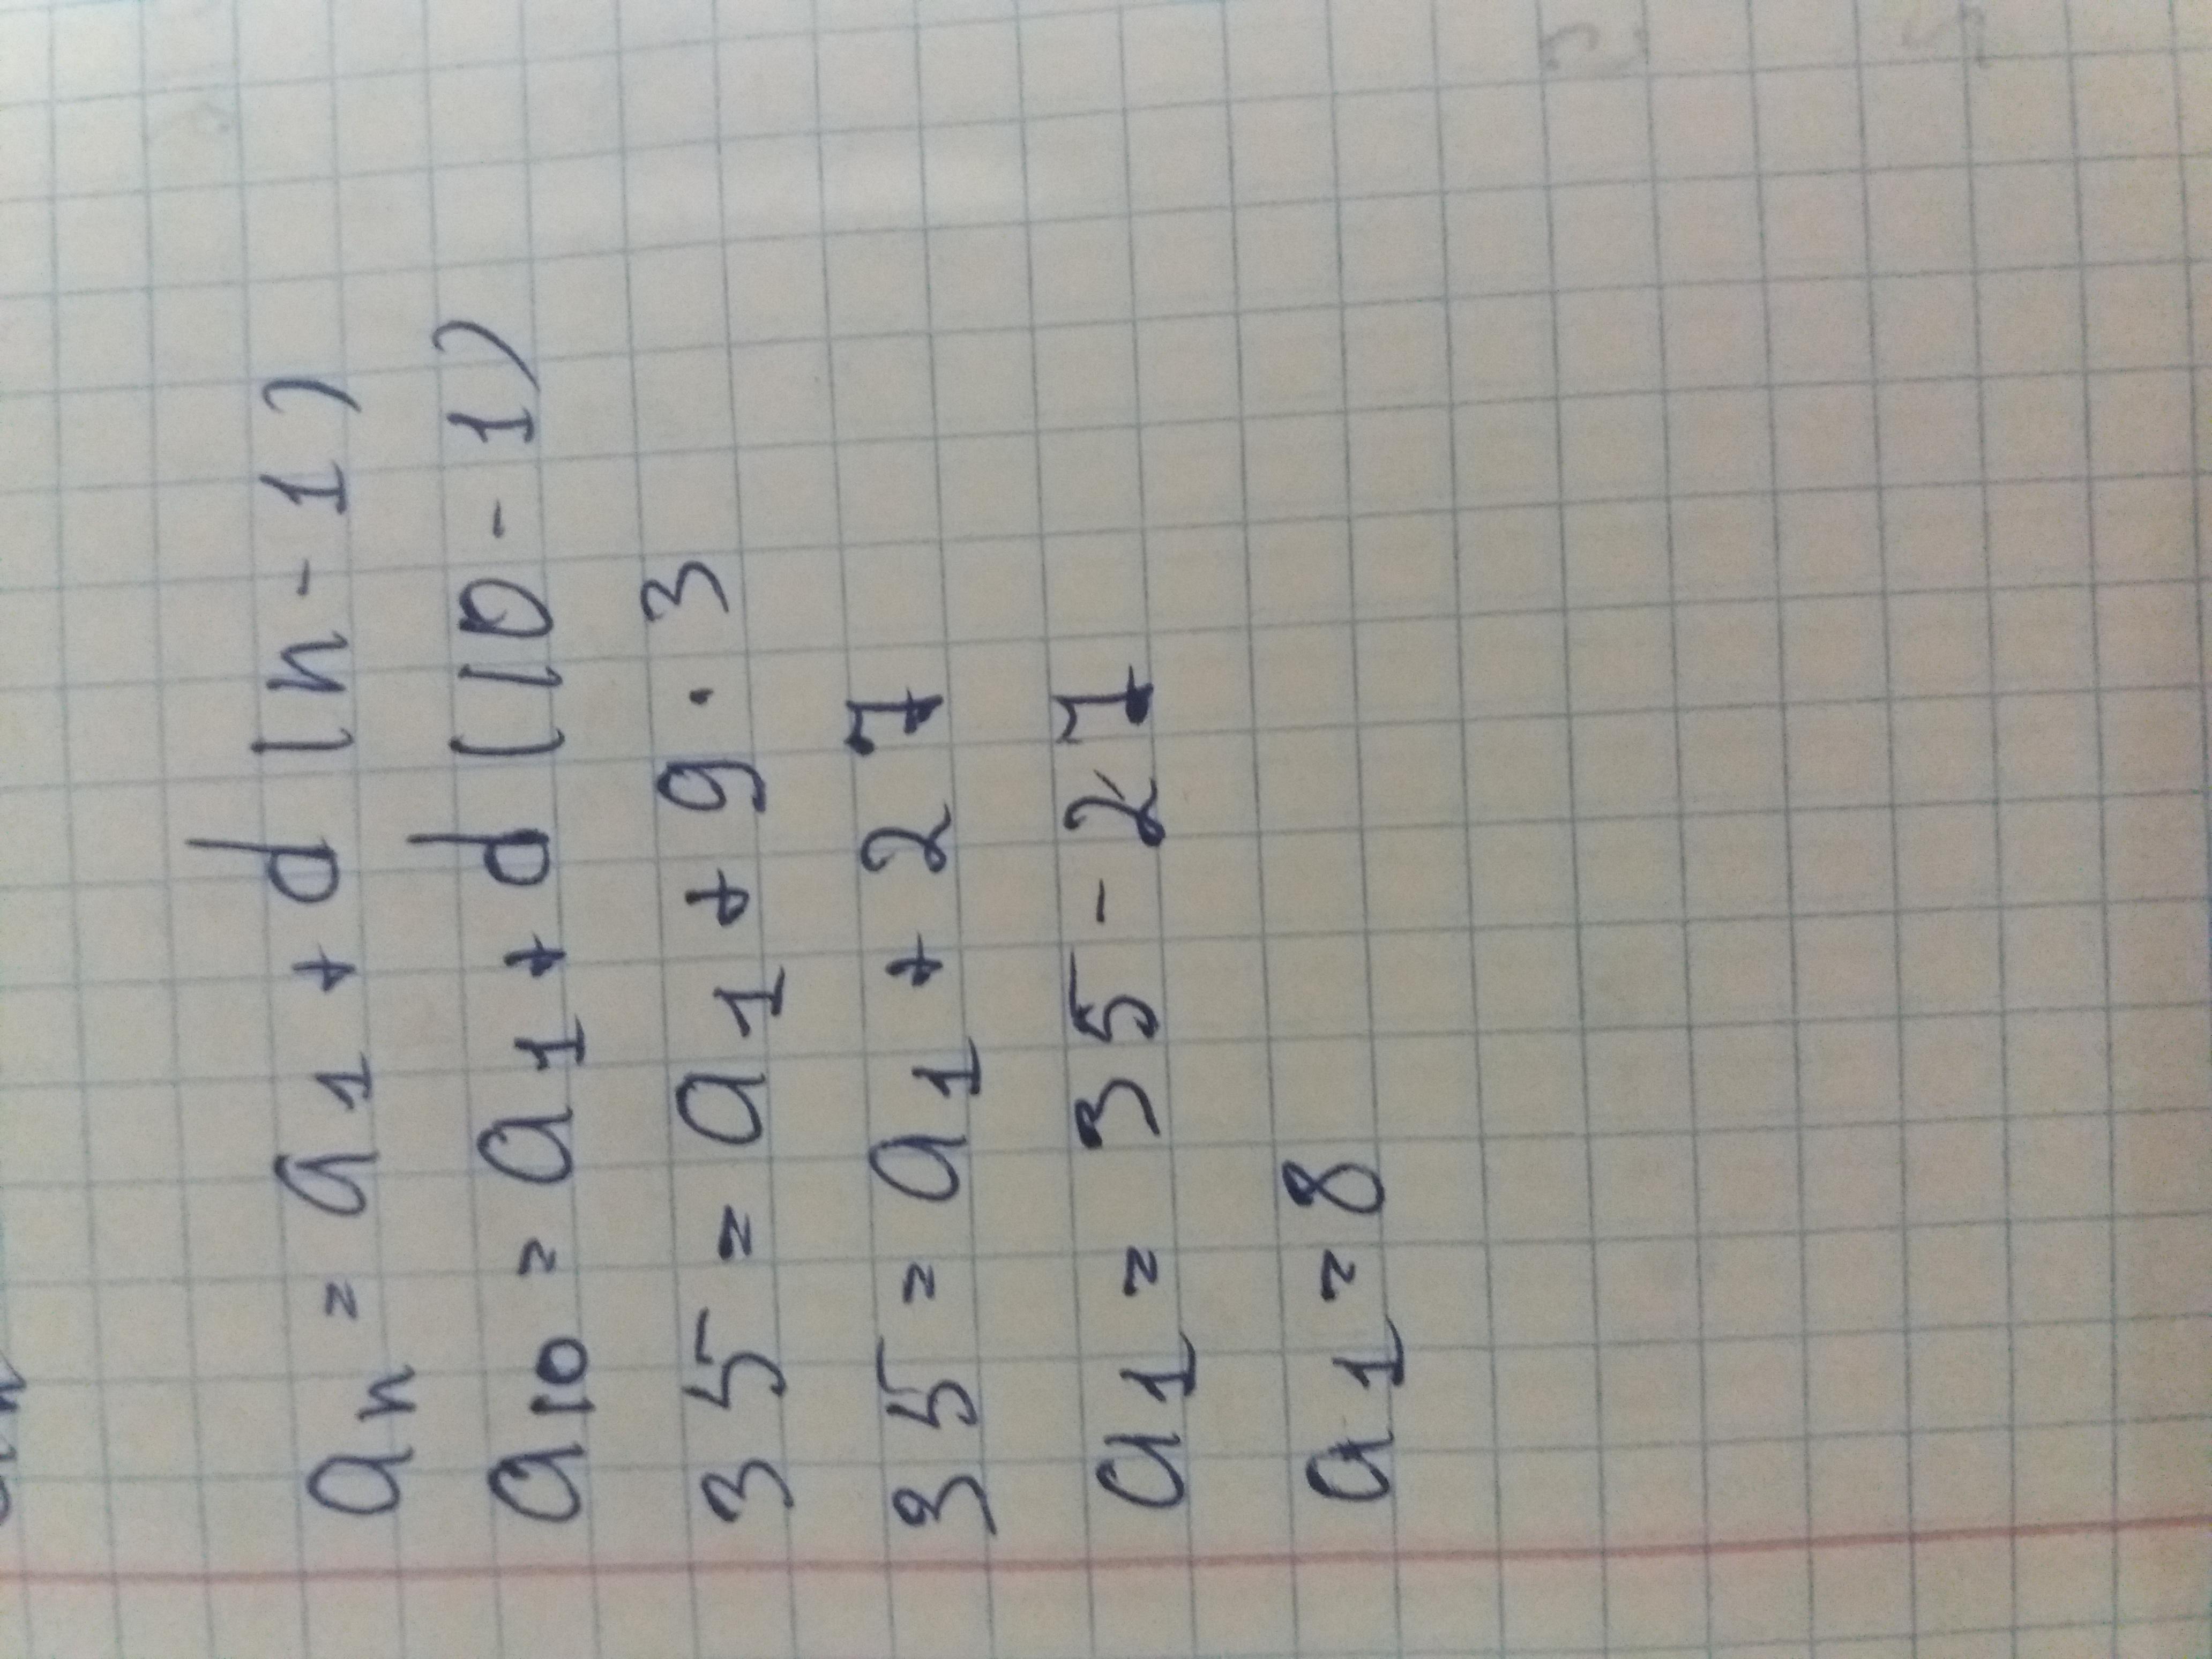 an = a1 + d (n - 1)
a10 = a1 + d (10 - 1)
35 = a1 + 9 · 3
35 = a1 + 27
a1 = 35 - 27
a1 = 8